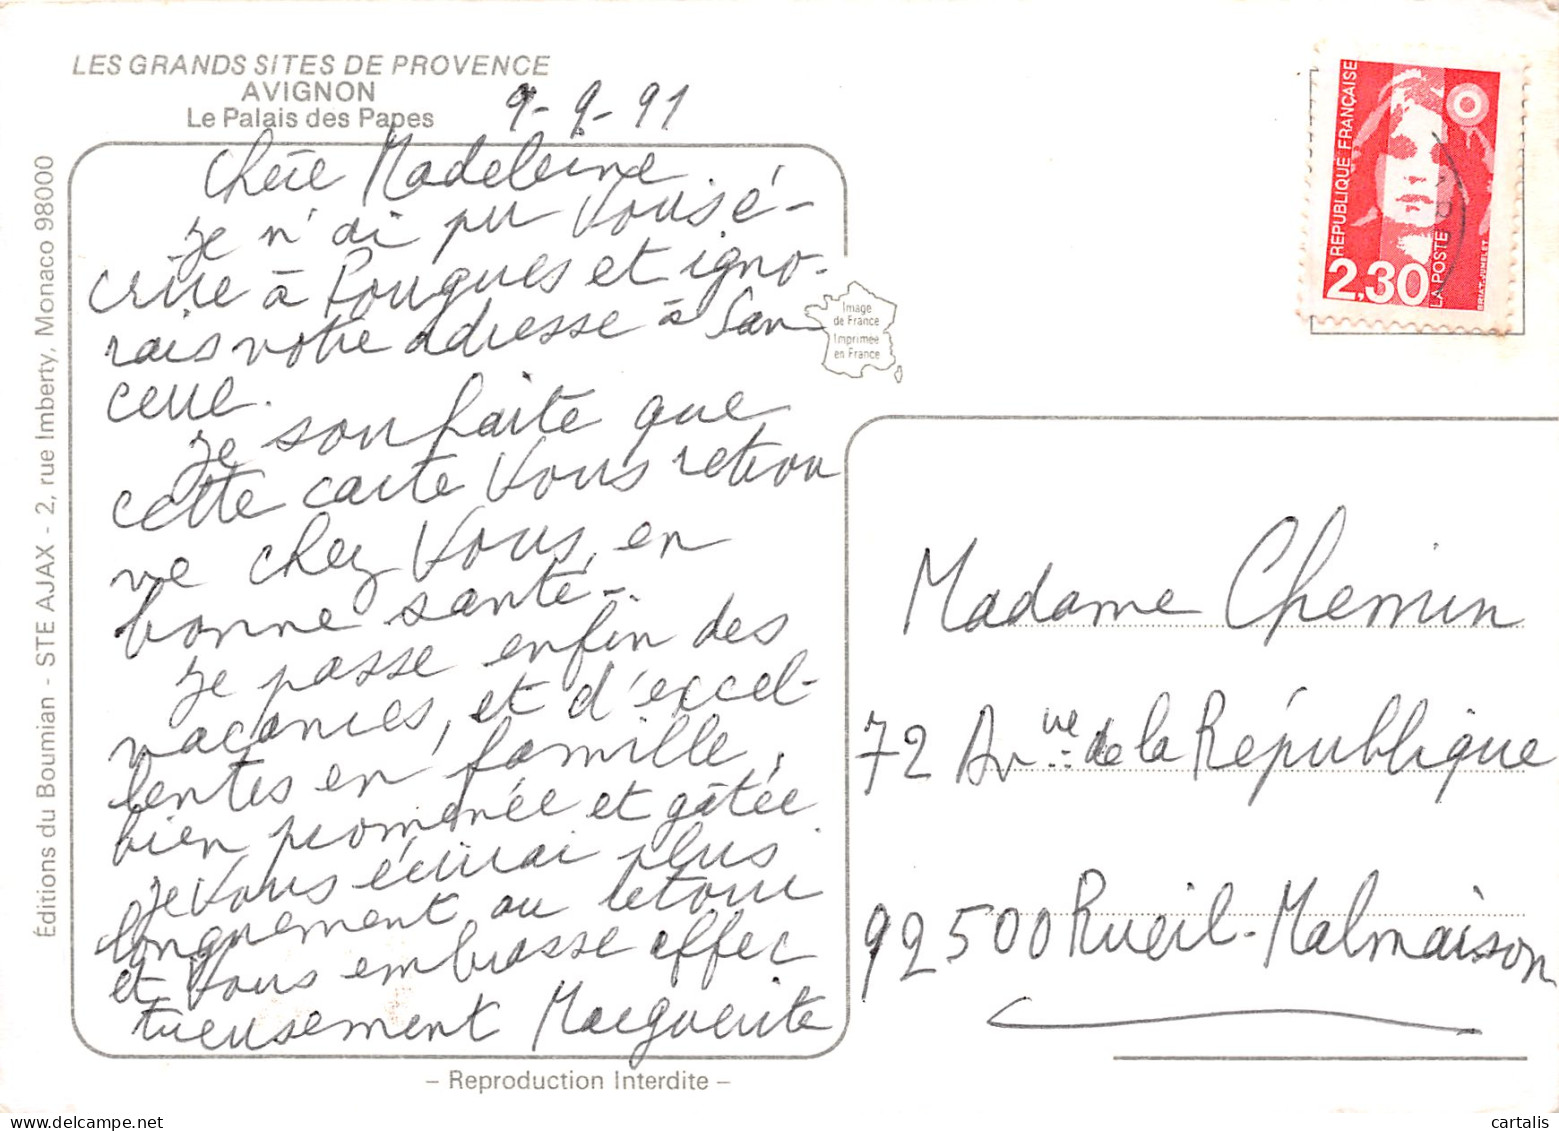 LES GRANDS SITES DE PROVENCE
AVIGNON
Le Palais des Papes
9-9-91
Chère Madeleine.
Je n'ai pu vous é-
crire à Pougues et igno-
rais votre adresse à San
cerre.
Je souhaite que
cette carte vous retrou
ve chez vous, en
bonne santé-.
Je passe enfin des
vacances, et d'excel-
lentes en famille,
bien promenée et gâtée.
Je vous écrirai plus
longuement au retour
et vous embrasse affec
tueusement Marguerite
Éditions du Boumian - STE AJAX - 2, rue Imberty, Monaco 98000
Image
de France
Imprimée
en France
REPUBLIQUE FRANÇAISE
2,30
LA POSTE
BRIAT-JUMELET
Madame Chemin
72 Avnue de la République
92500 Rueil-Malmaison
– Reproduction Interdite –
cartalis